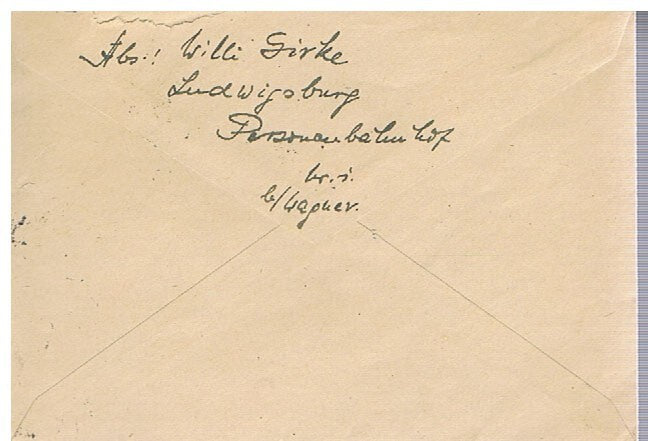 Abs.: Willi Girke
Ludwigsburg
Personenbahnhof
b/Wagner.